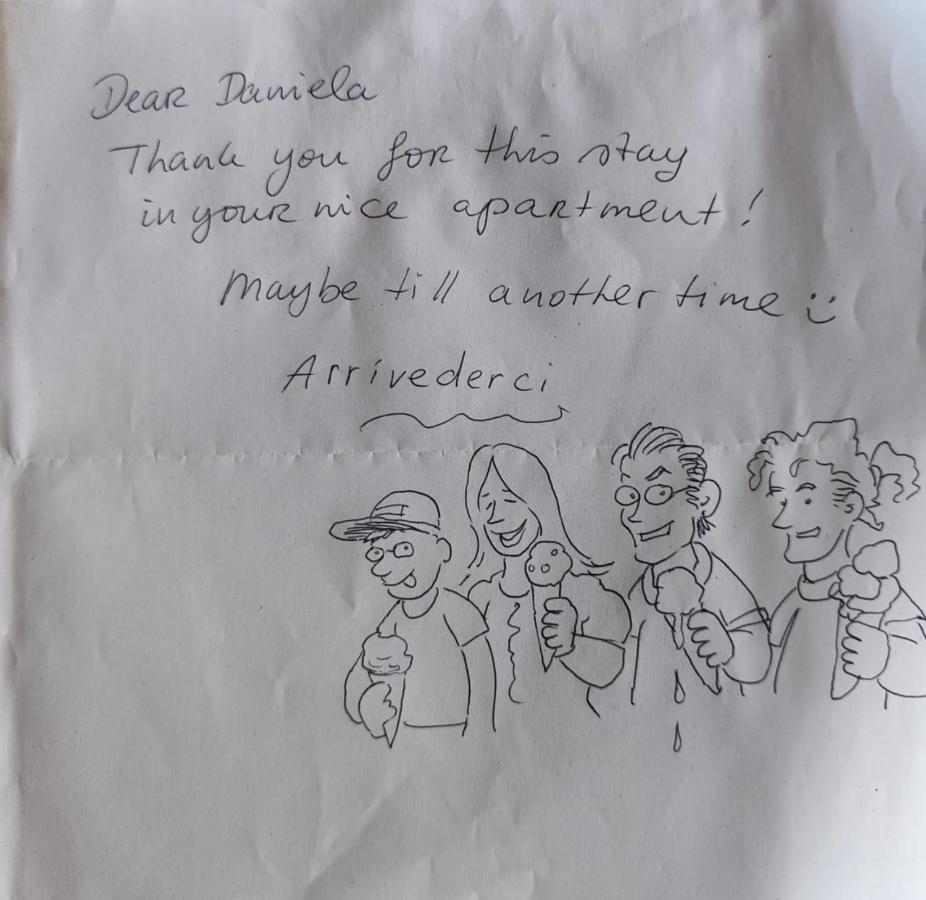 Dear Daniela
Thank you for this stay
in your nice apartment!
Maybe till another time :)
Arrivederci